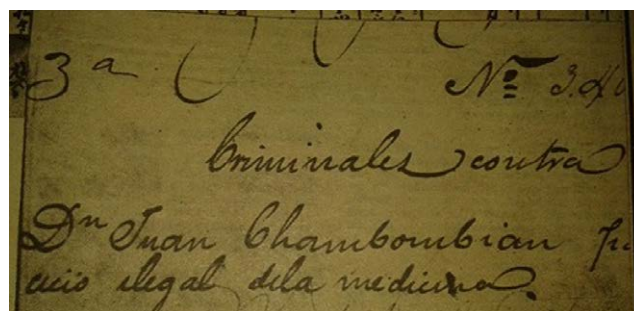 3ª Nº 3.
Criminales contra
Dⁿ Juan Chambombian
cicio ilegal dela medicina.